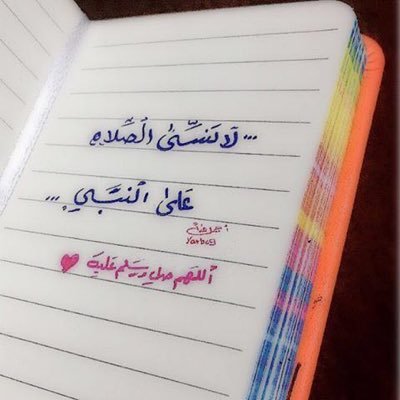 ... لَا تَنسَىٰ الْصَّلاه
عَلىٰ الْنَبِّي ...
اللهم صلي وسلم عليه